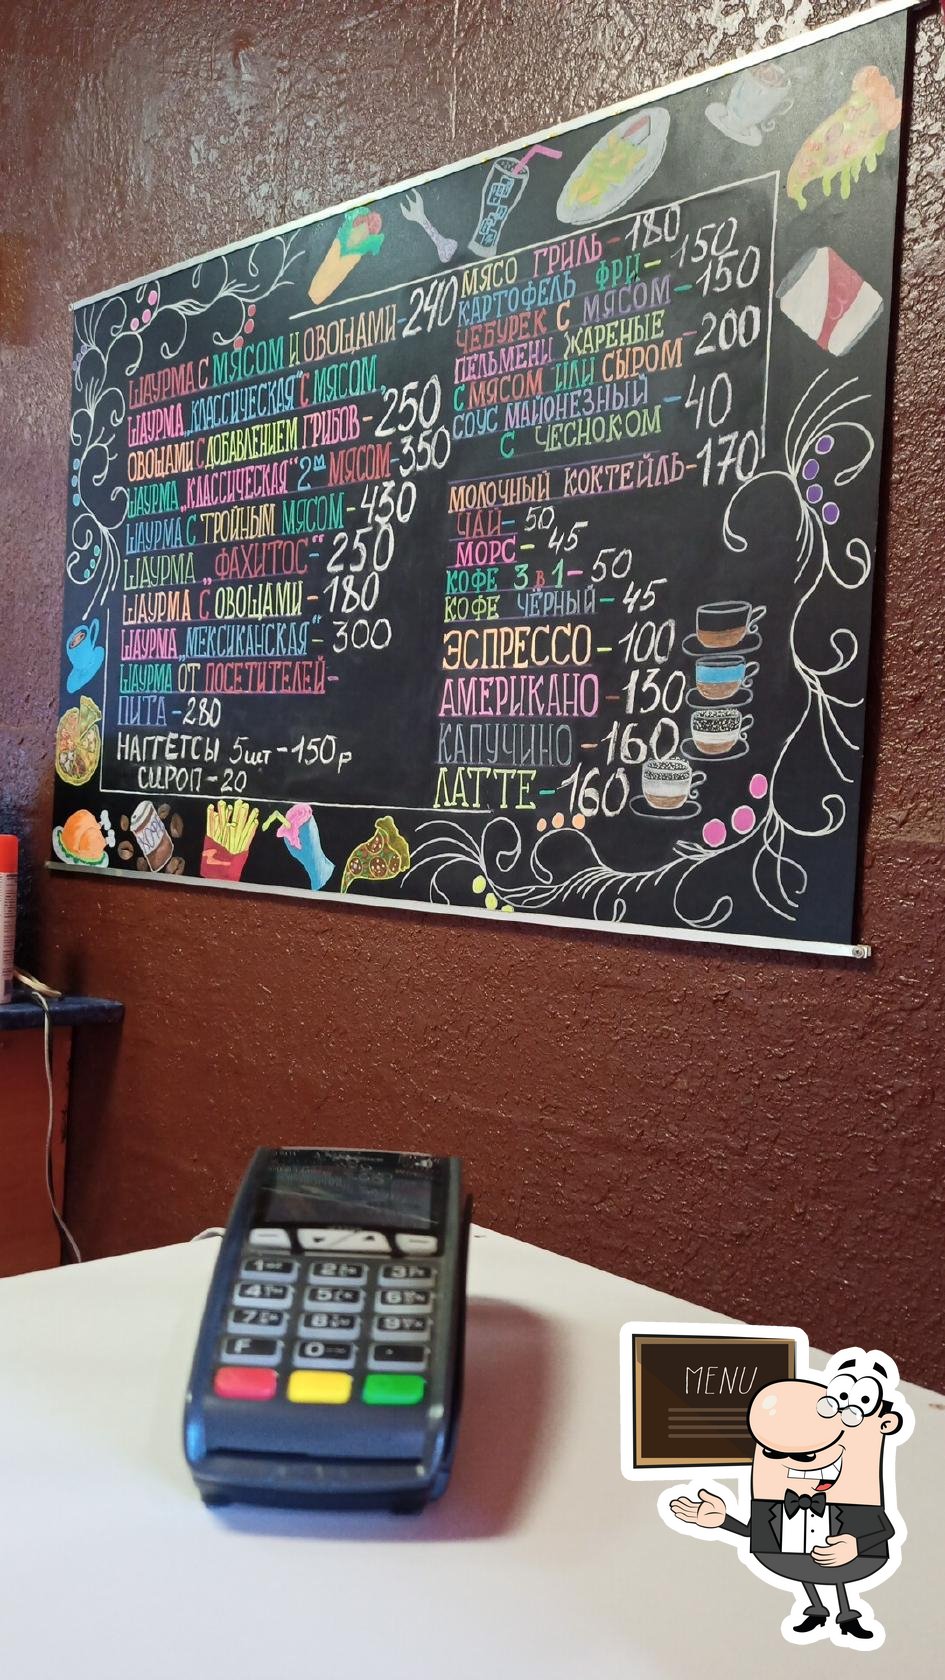 ШАУРМА С МЯСОМ И ОВОЩАМИ-240
ШАУРМА „КЛАССИЧЕСКАЯ" С МЯСОМ,
ОВОЩАМИ С ДОБАВЛЕНИЕМ ГРИБОВ-250
ШАУРМА „КЛАССИЧЕСКАЯ" 2ым МЯСОМ-350
ШАУРМА С ТРОЙНЫМ МЯСОМ-430
ШАУРМА „ФАХИТОС"-250
ШАУРМА С ОВОЩАМИ-180
ШАУРМА „МЕКСИКАНСКАЯ"-300
ШАУРМА ОТ ПОСЕТИТЕЛЕЙ-
ПИТА-280
НАГГЕТСЫ 5шт-150р
СИРОП-20
МЯСО ГРИЛЬ-180
КАРТОФЕЛЬ ФРИ-150
ЧЕБУРЕК С МЯСОМ-150
ПЕЛЬМЕНИ ЖАРЕНЫЕ
С МЯСОМ ИЛИ СЫРОМ-200
СОУС МАЙОНЕЗНЫЙ-40
С ЧЕСНОКОМ
МОЛОЧНЫЙ КОКТЕЙЛЬ-170
ЧАЙ-50
МОРС-45
КОФЕ 3 в 1-50
КОФЕ ЧЁРНЫЙ-45
ЭСПРЕССО-100
АМЕРИКАНО-130
КАПУЧИНО-160
ЛАТТЕ-160
1 2 3
4 5 6
7 8 9
F 0 .
MENU